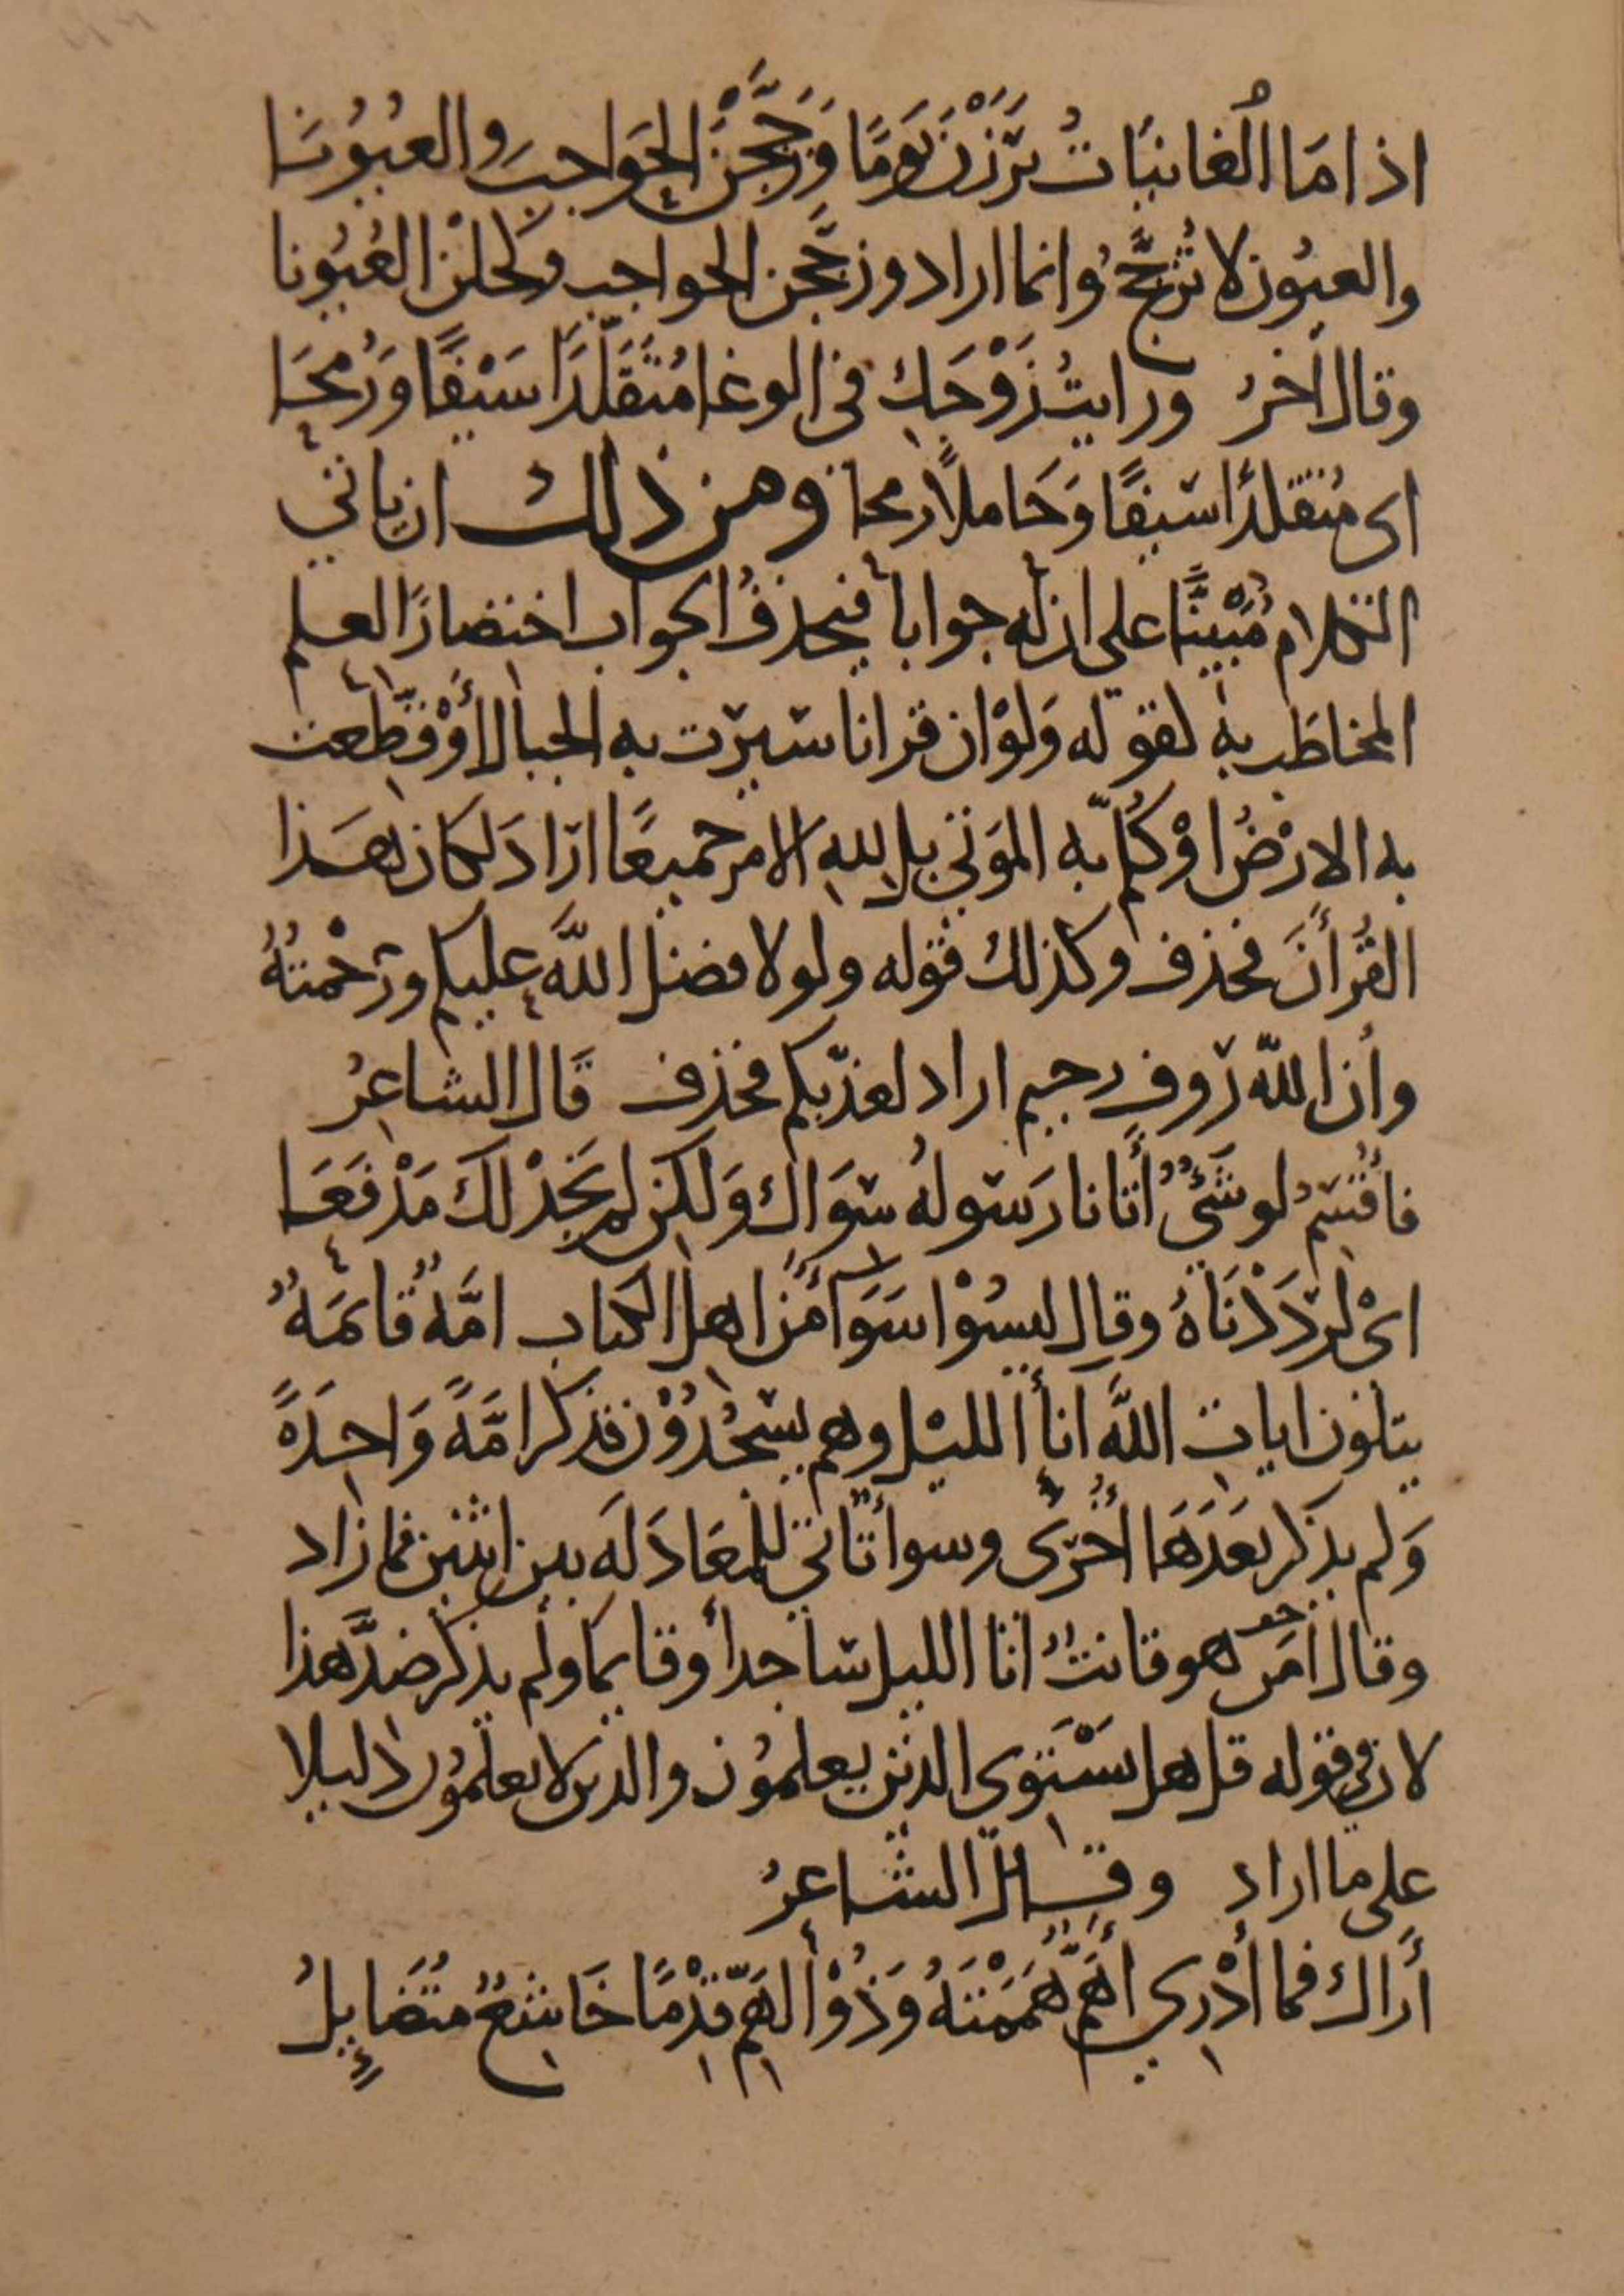 اذا مَا الُغانيَاتُ بَرَزْنَ يَومًا وَزَجَّجْنَ الحَوَاجِبَ والعُيُونَا
والعيُون لا تُزجَّجُ وانما اراد وزجَّجن الحواجب وكحلْنَ العُيُونا
وقال اخرُ ورايتُ زَوْجَكِ في الوغا مُتَقَلّدًا سَيْفًا وَرُمحَا
اى مُتقلدًا سَيفًا وَحَاملاً رمحا ومن ذلك ان ياتي
الكلام مُبَيَّنًا على ان له جوابا فيحذفُ الجواب اختصارًا لعلم
المخاطَب بهِ لقوله وَلوْ ان قرانا سيرت به الجبالُ أوْ قطّعت
به الارْضُ اوْ كُلّم به المَوتى بل للهِ الامر جميعًا ارَادَ لكان هَذا
القُرأنَ فحذف وكذلك قوله ولولا فضل اللَّه عليكم ورَحْمتُهُ
وأن اللّه رؤوف رحيم اراد لعذّبكم فحذف قَال الشاعِرُ
فاُقْسِمُ لو شَئٌ أتانا رَسولهُ سوَاكَ وَلكِن لم نَجِدْ لكَ مَدْفَعَا
اىْ لردَدْنَاهُ وقال ليسُوْا سَوَآً مِّن اهل الكتاب امَّةٌ قائمَةٌ
يتلون ايات اللَّه اناأ الليْل وهم يسْجُدوْن فذكر امَّةً وَاحِدَةً
وَلم يذكر بعَدَهَا أخْرَى وسوأ تَأتي للمعَادَلَه بين اثنين فما زاد
وقال امَّن هو قانتٌ انَا الليل ساجدا وقايما ولم يذكر ضدَّ هذا
لان في قوله قل هل يَسْتَوى الذين يعلمُون والذين لا يعلَمُون دليلا
على ما اراد وقال الشاعِرُ
أرَاك فما أدْرِي أهَمٌّ هَمَمْتَهُ وَذُوْ الهَمِّ قِدْمًا خَاشِعٌ مُتَضَايِلُ